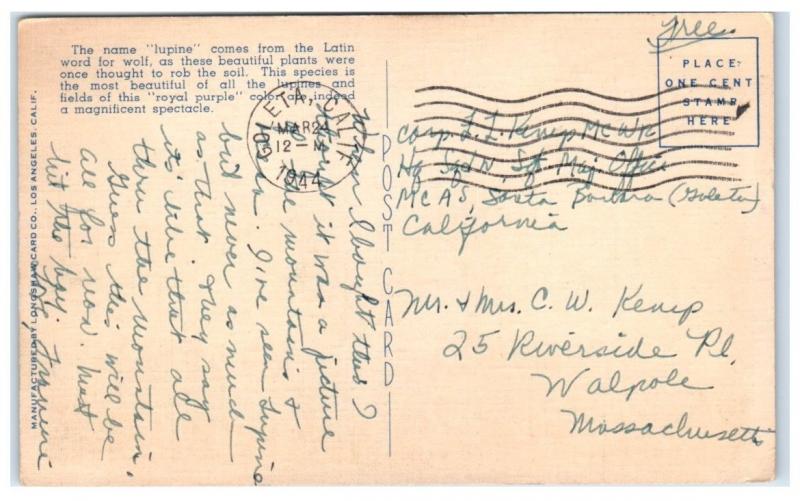 The name "lupine" comes from the Latin
word for wolf, as these beautiful plants were
once thought to rob the soil. This species is
the most beautiful of all the lupines and
fields of this "royal purple" color are indeed
a magnificent spectacle.
MANUFACTURED BY LONGSHAW CARD CO., LOS ANGELES, CALIF.
POST CARD
Free
PLACE
ONE CENT
STAMP
HERE
GOLETA, CALIF.
MAR 2
12-M
1944
Corp. L. I. Kemp MCWR
Hq Sqdn, Sgt Maj Office
MCAS, Santa Barbara (Goleta)
California
Mr. & Mrs. C. W. Kemp
25 Riverside Pl.
Walpole
Massachusetts
When I bought this I
thought it was a picture
of the mountains &
ocean. I've seen lupine
but never as much
as that. They say
it's like that all
thru the mountain.
Guess this will be
all for now. Must
hit the hay.